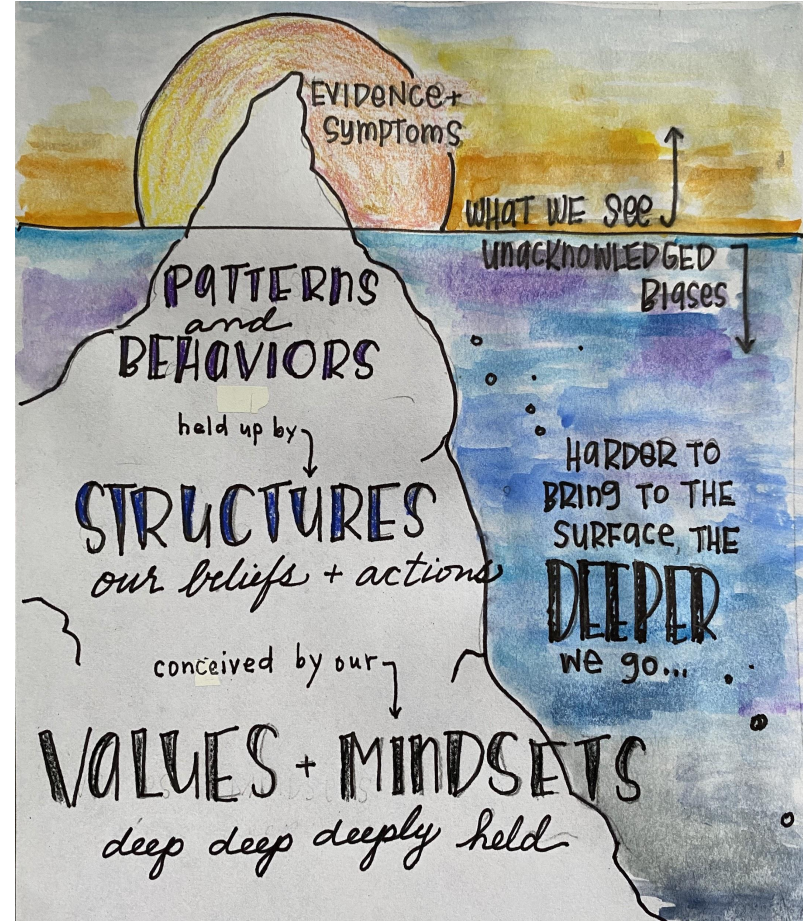 EVIDENCE +
SYMPTOMS
WHAT WE SEE
UNACKNOWLEDGED
BIASES
PATTERNS
and
BEHAVIORS
held up by
STRUCTURES
our beliefs + actions
conceived by our
VALUES + MINDSETS
deep deep deeply held
HARDER TO
BRING TO THE
SURFACE, THE
DEEPER
we go...